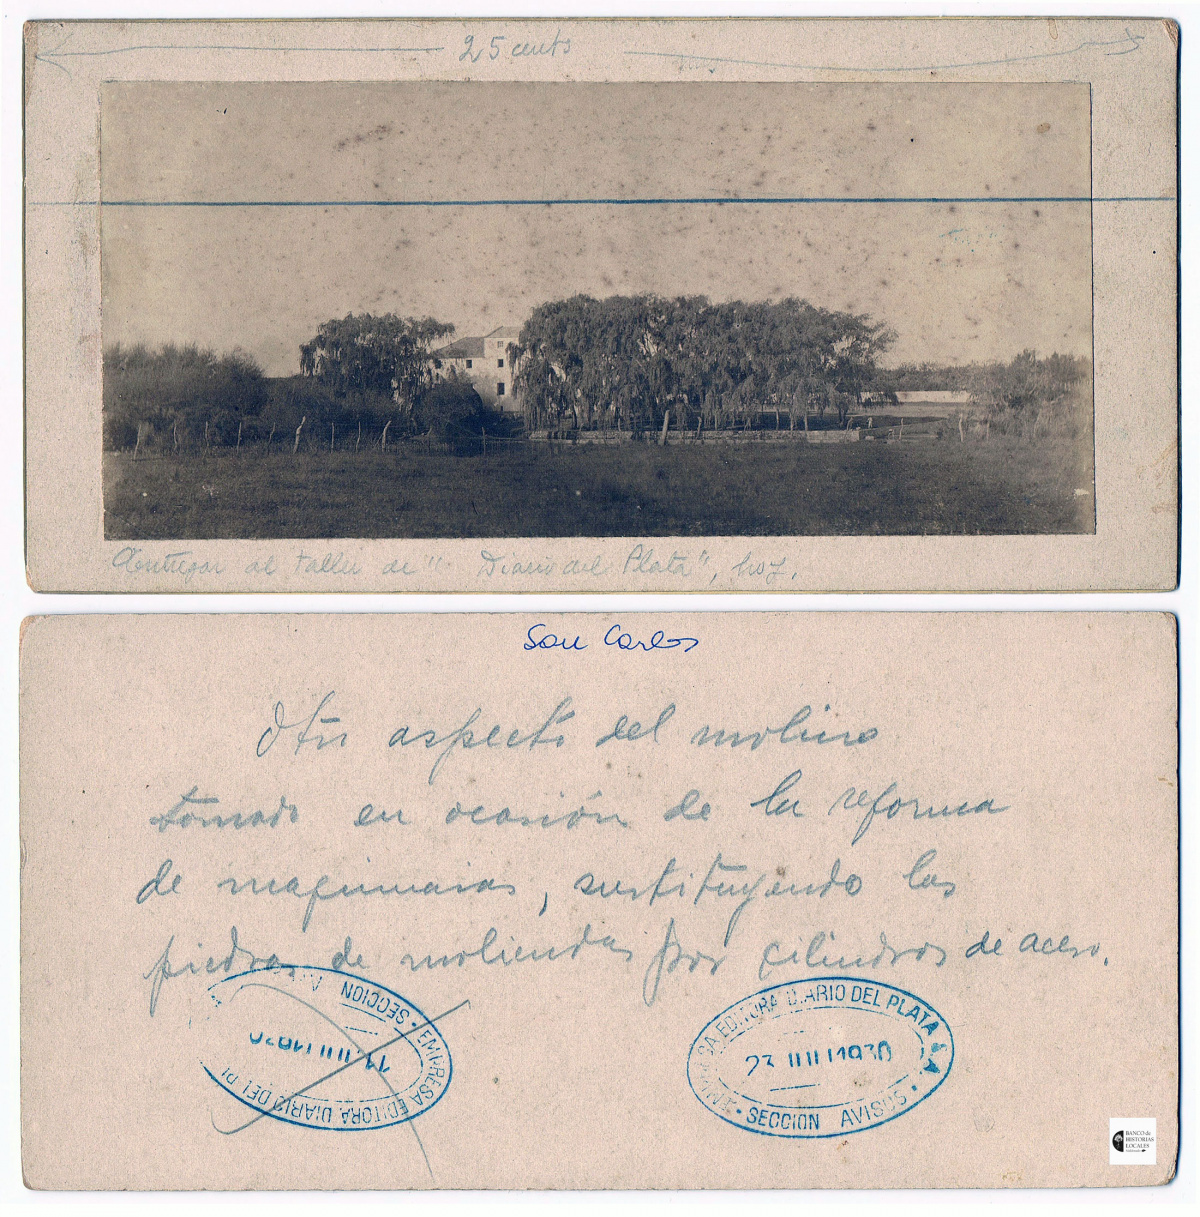 25 cents
Entregar al taller de "Diario del Plata", hoy.
San Carlos
Otro aspecto del molino
tomado en ocasión de la reforma
de maquinarias, sustituyendo las
piedras de moliendas por cilindros de acero.
EMPRESA EDITORA DIARIO DEL PL
11 1930
SECCION A
SA EDITORA DIARIO DEL PLATA S.A.
23 JUL 1930
SECCION AVISOS
BANCO de
HISTORIAS
LOCALES